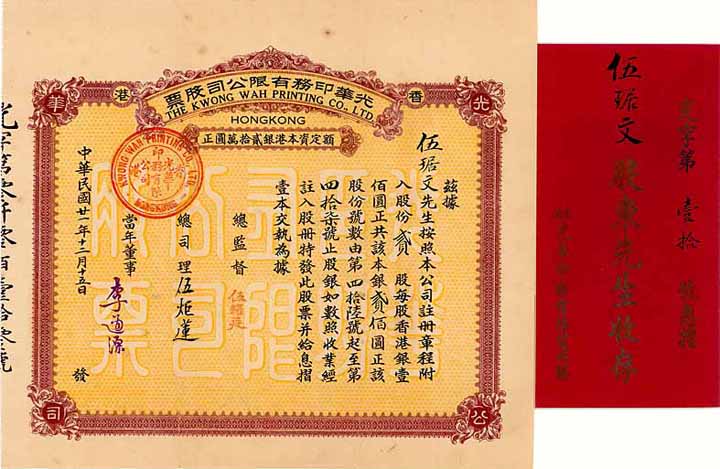 香港
光華印務有限公司股票
THE KWONG WAH PRINTING CO., LTD.
HONGKONG
額定資本港銀貳拾萬圓正
光
華
公
司
茲據
伍琚文先生按照本公司註冊章程附
入股份貳股每股香港銀壹
佰圓正共該本銀貳佰圓正該
股份號數由第四拾陸號起至第
四拾柒號止股銀如數照收業經
註入股冊特發此股票并給息摺
壹本交執為據
總監督
總司理伍炬蓮
當年董事
中華民國廿一年十二月十五日
發
KWONG WAH PRINTING CO. LTD.
HONGKONG
伍琚文
股東先生收存
光字第壹拾